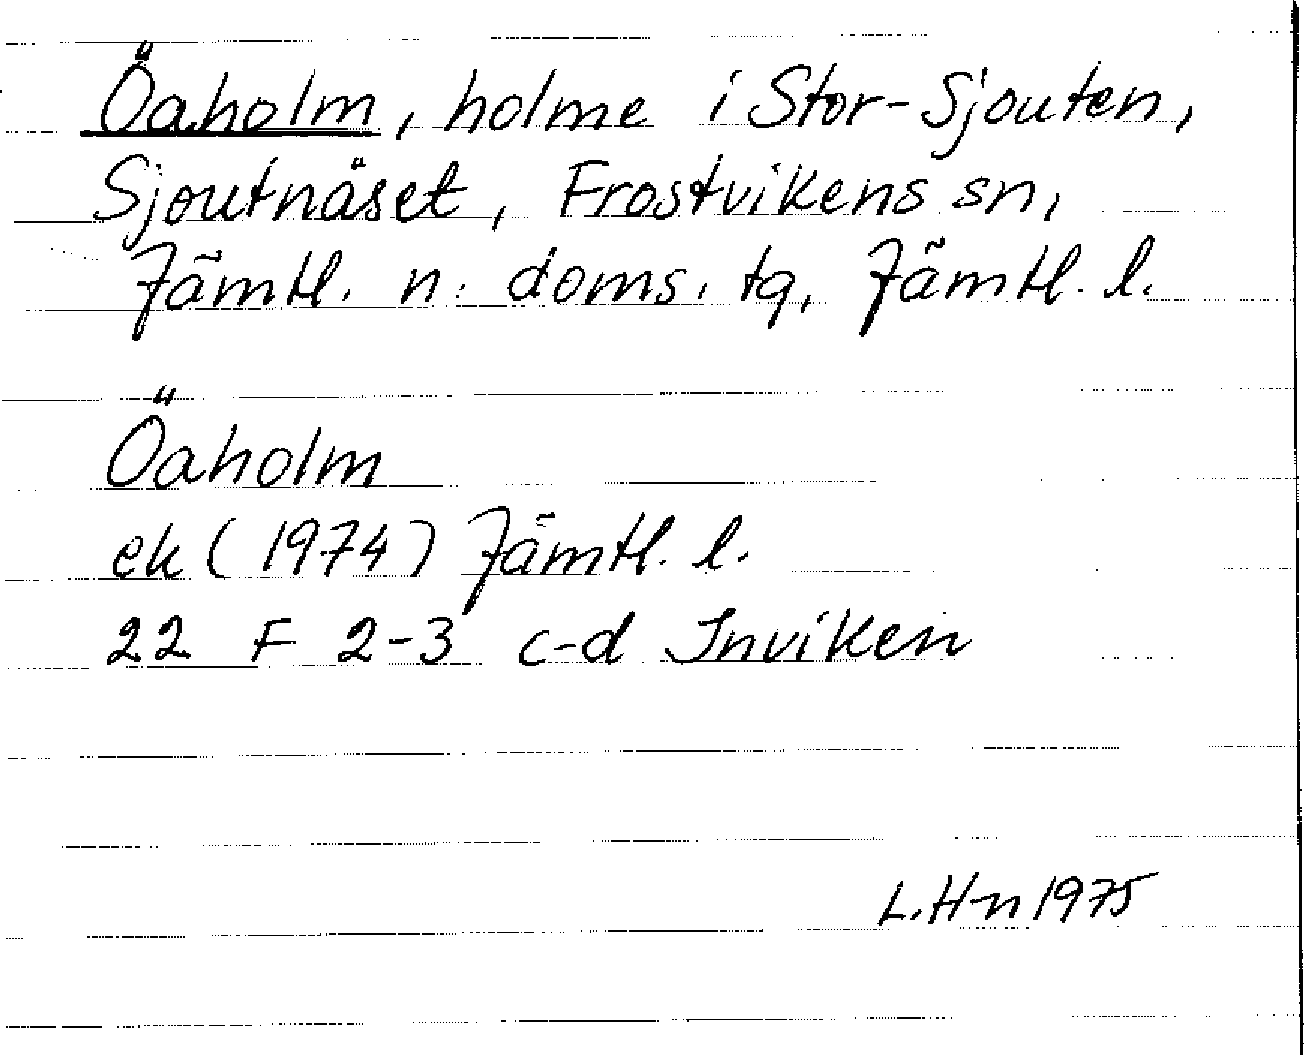 Öaholm, holme i Stor-Sjouten,
Sjoutnäset, Frostvikens sn,
Jämtl. n. doms. tg, Jämtl. l.
Öaholm
ek (1974) Jämtl. l.
22 F 2-3 c-d Inviken
L. Hn 1975